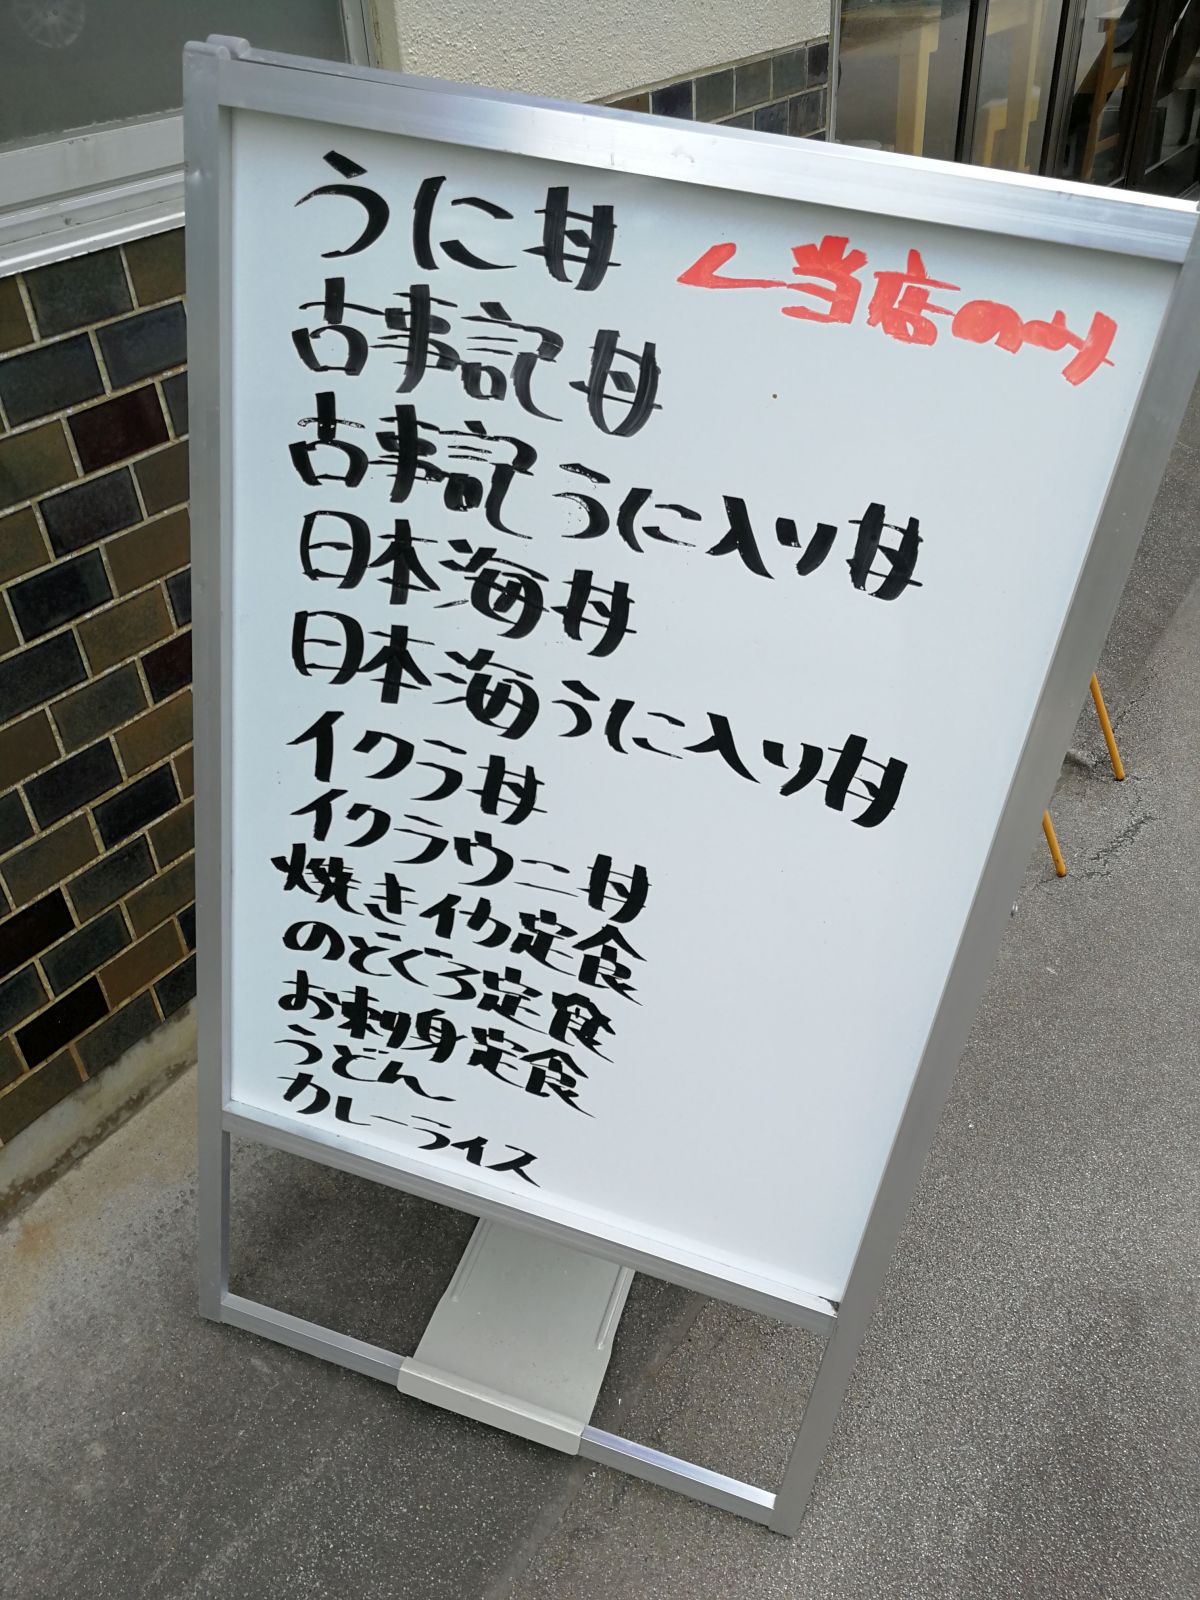 うに丼 ＜当店のみ
古事記丼
古事記うに入り丼
日本海丼
日本海うに入り丼
イクラ丼
イクラウニ丼
焼きイク定食
のどぐろ定食
お刺身定食
うどん
カレーライス